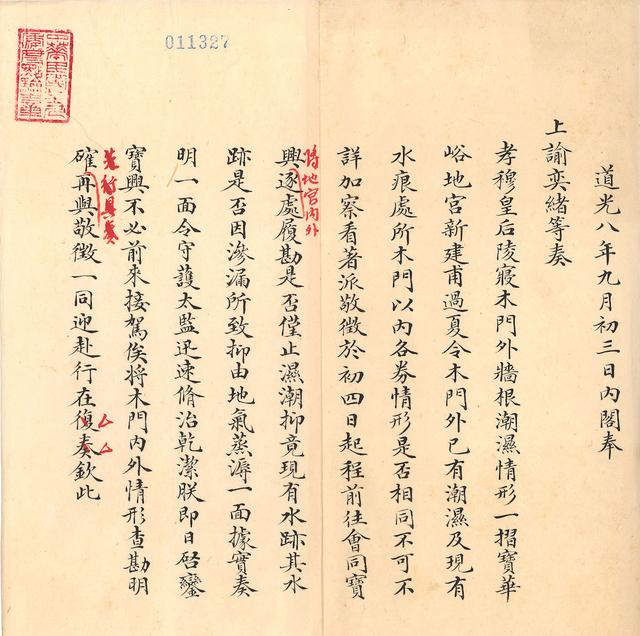 011327
道光八年九月初三日內閣奉
上諭奕緒等奏
孝穆皇后陵寢木門外牆根潮濕情形一摺寶華
峪地宮新建甫過夏令木門外已有潮濕及現有
水痕處所木門以內各券情形是否相同不可不
詳加察看著派敬徵於初四日起程前往會同寶
將地宮內外
興逐處履勘是否僅止濕潮抑竟現有水跡其水
跡是否因滲漏所致抑由地氣蒸溽一面據實奏
明一面令守護太監迅速脩治乾潔朕即日啓鑾
寶興不必前來接駕俟將木門內外情形查勘明
行具奏
確再與敬徵一同迎赴行在復奏欽此